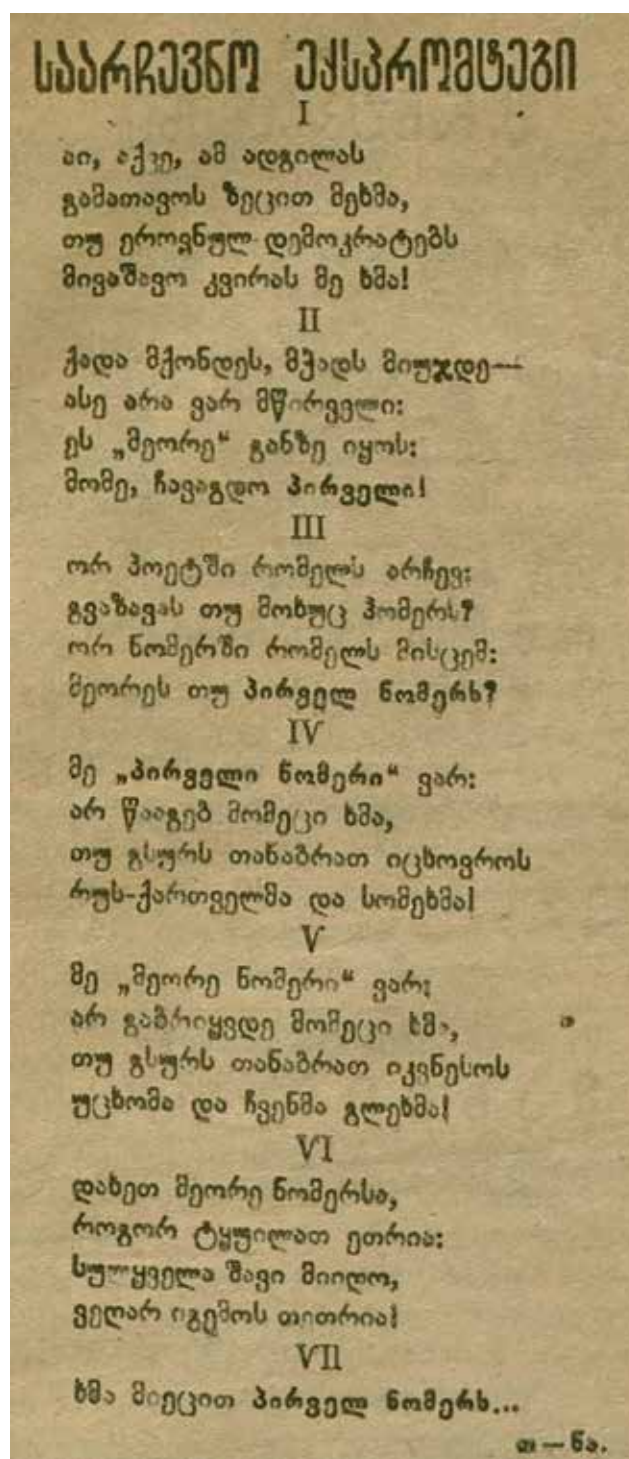 საარჩევნო ექსპრომტები
I
აი, აქვე, ამ ადგილას
გამათავოს ზეცით მეხმა,
თუ ეროვნულ-დემოკრატებს
მივაშავო კვირას მე ხმა!
II
ქადა მქონდეს, მჭადს მიუჯდე—
ასე არა ვარ მწირველი:
ეს „მეორე“ განზე იყოს:
მომე, ჩავაგდო პირველი!
III
ორ პოეტში რომელს არჩევ:
გვაზავას თუ მოხუც ჰომერს?
ორ ნომერში რომელს მისცემ:
მეორეს თუ პირველ ნომერს?
IV
მე „პირველი ნომერი“ ვარ:
არ წააგებ მომეცი ხმა,
თუ გსურს თანაბრათ იცხოვროს
რუს-ქართველმა და სომეხმა!
V
მე „მეორე ნომერი“ ვარ:
არ გაბრიყვდე მომეცი ხმა,
თუ გსურს თანაბრათ იკვნესოს
უცხომა და ჩვენმა გლეხმა!
VI
დახეთ მეორე ნომერსა,
როგორ ტყუილათ ეთრია:
სულყველა შავი მიიღო,
ველარ იგემოს თითრია!
VII
ხმა მიეცით პირველ ნომერს...
თ—ნა.